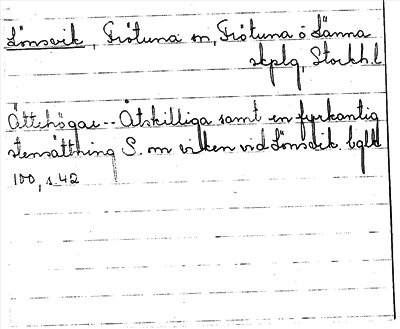 Lönsvik, Frötuna sn, Frötuna o Länna
skplg, Stockh.l
Ättehögar -- Åtskilliga samt en fyrkantig
stensättning S. om viken vid Lönsvik.
100, s. 42